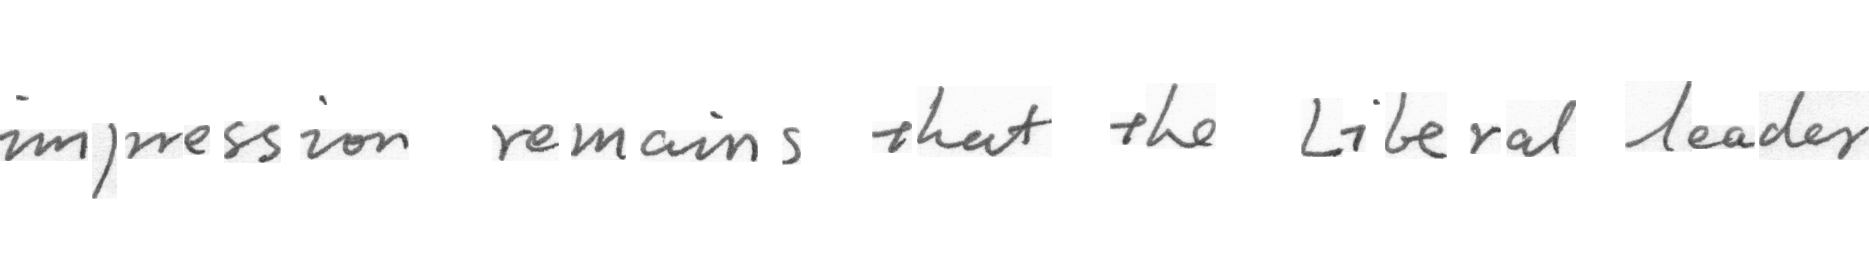 impression remains that the Liberal leader